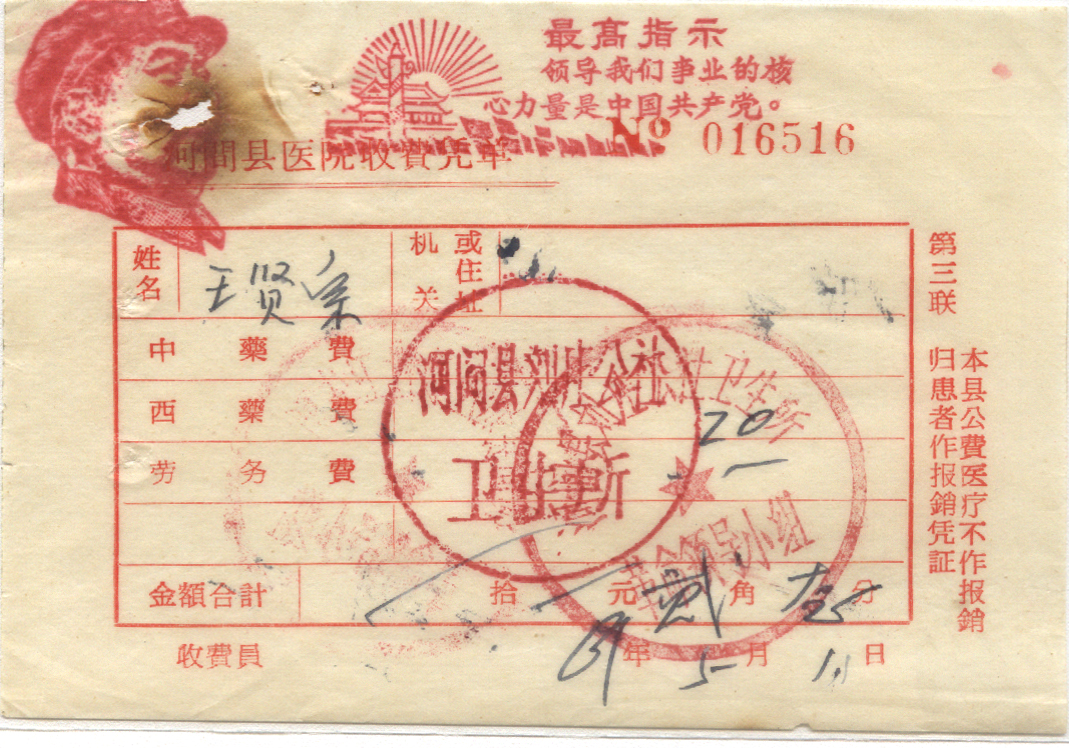 最高指示
领导我们事业的核
心力量是中国共产党。
№ 016516
河間县医院收費凭单
姓名 王贤宗 机关 或住址
中藥費
西藥費 20
劳务費
金額合計 拾 元 貳 角 分
收費員 年 5 月 日
第三联
本县公費医疗不作报銷
归患者作报銷凭証
河间县 公社
卫生所
卫生所
革命领导小组